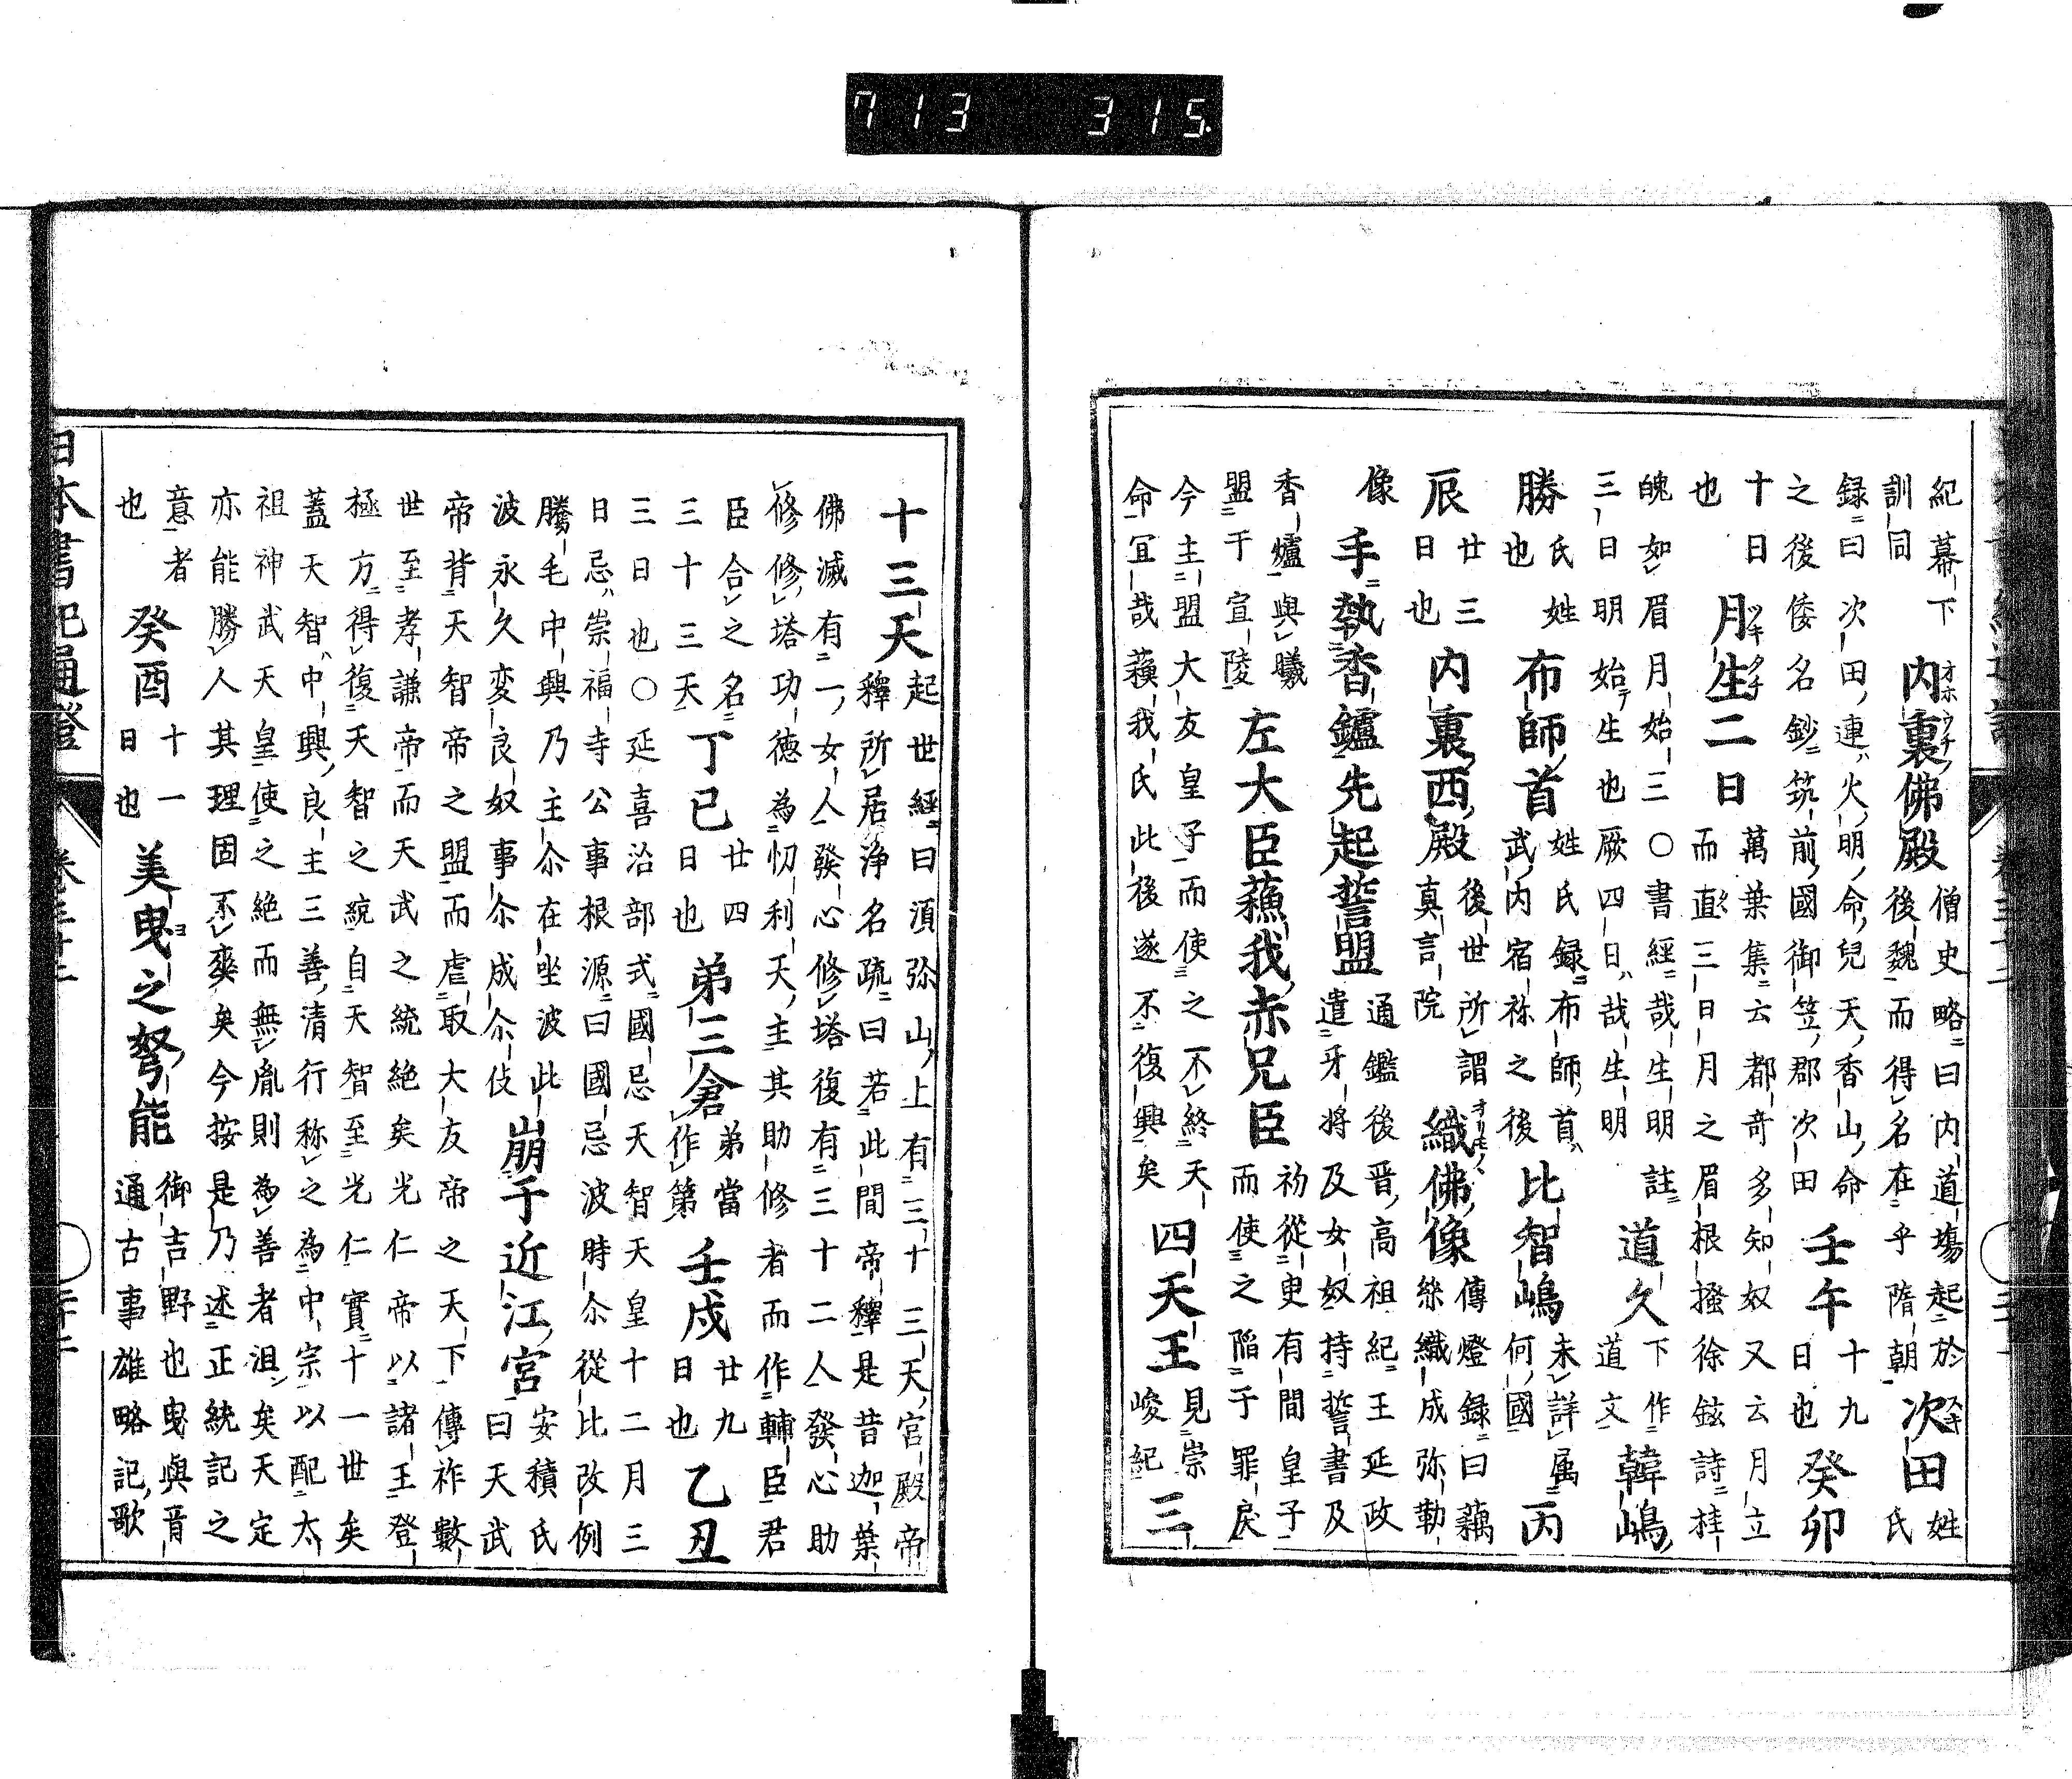 713 315.
紀幕下
訓同
内裏佛殿
僧史略曰内道塲起於
後魏而得名在乎隋朝
次田
姓
氏
録曰次田連火明命兒天香山命
之後倭名鈔筑前國御笠郡次田
壬午
十九
日也
癸卯
十日
也
月生二日
萬葉集云都奇多知奴又云月立
而直三日月之眉根搔徐鉉詩桂
魄如眉月始三○書經哉生明註
三日明始生也厥四日哉生明
道久
下作
道文
韓嶋
勝
氏姓
也
布師首
姓氏録布師首
武内宿祢之後
比智嶋
未詳属
何國
丙
辰
廿三
日也
内裏西殿
後世所謂
真言院
織佛像
傳燈録曰藕
絲織成弥勒
像
手執香鑪先起誓盟
通鑑後晋高祖紀王延政
遣牙将及女奴持誓書及
香爐與曦
盟于宣陵
左大臣蘓我赤兄臣
初從更有間皇子
而使之陷于罪戻
今主盟大友皇子而使之不終天
命冝哉蘓我氏此後遂不復興矣
四天王
見崇
峻紀
三
十三天
起世經曰湏弥山上有三十三天宮殿帝
釋所居浄名疏曰若此間帝釋是昔迦葉
佛滅有一女人發心修塔復有三十二人發心助
修修塔功徳為忉利天主其助修者而作輔臣君
臣合之名
三十三天
丁巳
廿四
日也
弟三倉
弟當
作第
壬戌
廿九
日也
乙丑
三日也○延喜治部式國忌天智天皇十二月三
日忌崇福寺公事根源曰國忌波時尒從比改例
騰毛中興乃主尒在坐波此
波永久変良奴事尒成尒伎
崩于近江宮
安積氏
曰天武
帝背天智帝之盟而虐取大友帝之天下傳祚數
世至孝謙帝而天武之統絶矣光仁帝以諸王登
極方得復天智之統自天智至光仁實十一世矣
蓋天智中興良主三善清行称之為中宗以配太
祖神武天皇使之絶而無胤則為善者沮矣天定
亦能勝人其理固不爽矣今按是乃述正統記之
意者
也
癸酉
十一
日也
美曳之弩能
御吉野也曳與
通古事雄略記歌
日本書紀通證